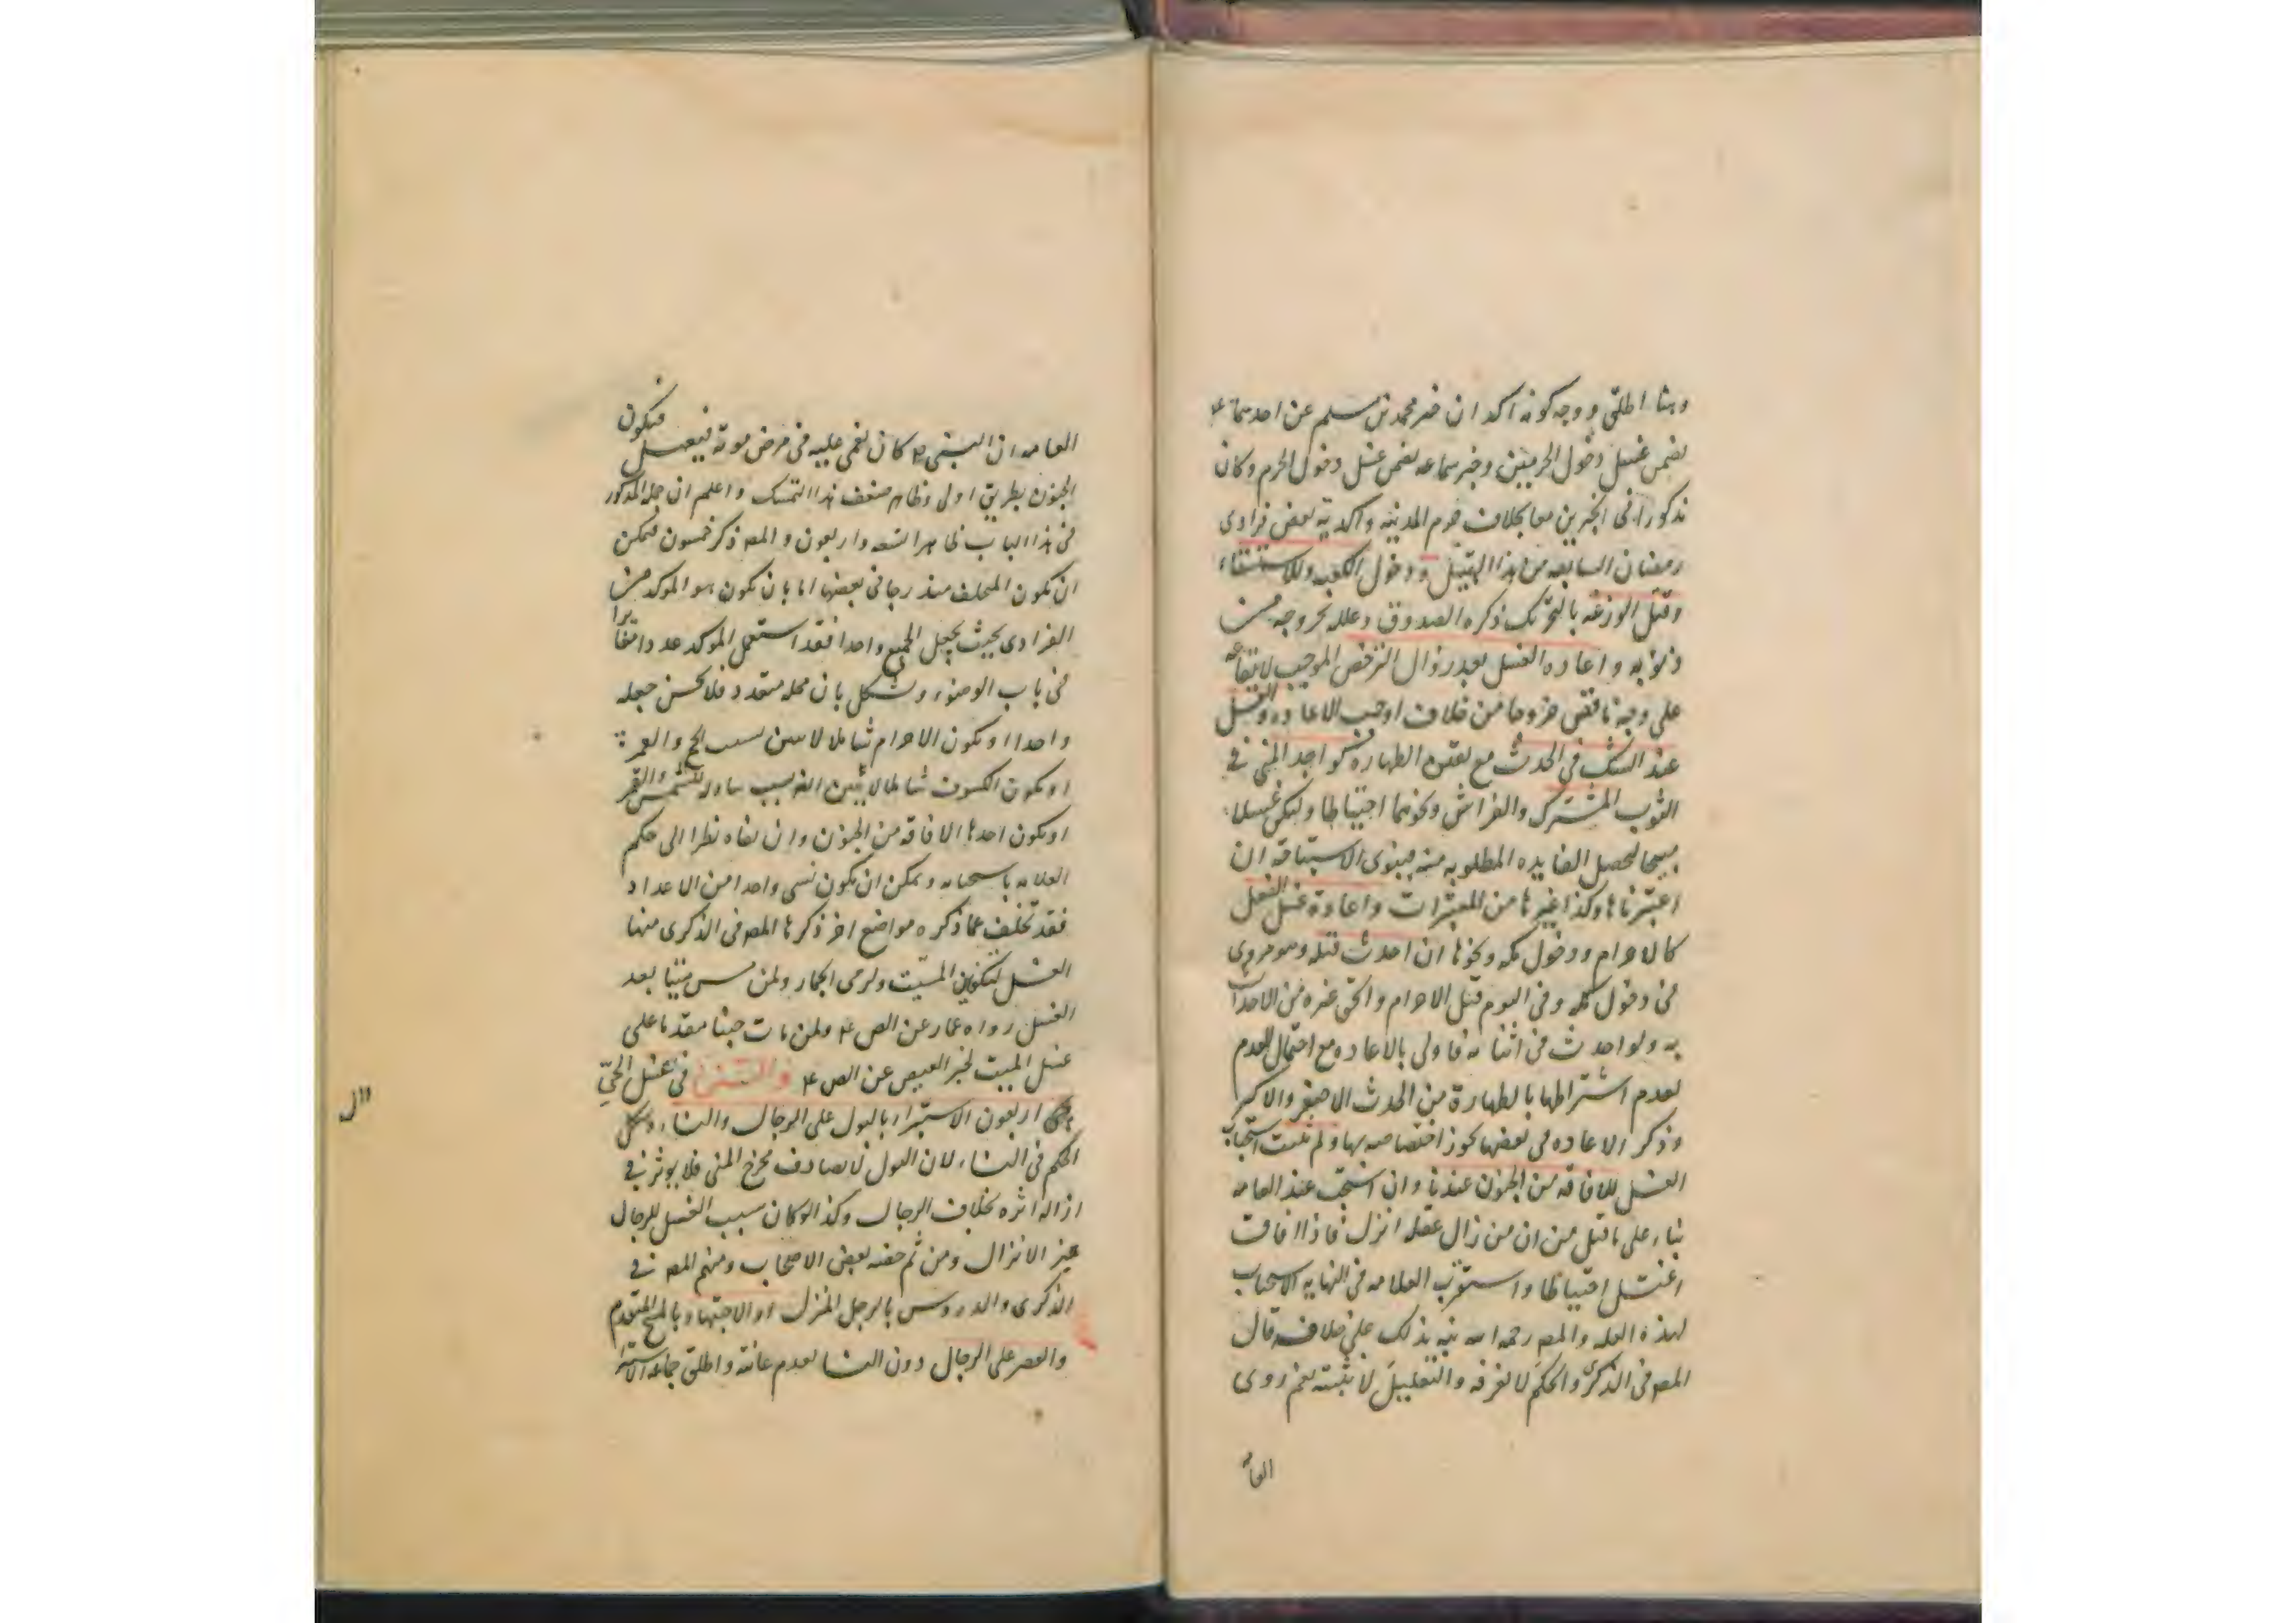 وهنا اطلق ووجه كونه اكد ان خبر محمد بن مسلم عن احدهما ع
تضمن غسل دخول الحرمين وخبر سماعه تضمن غسل دخول الحرم وكان
مذكورا في الخبرين معا بخلاف حرم المدينه واكديه بعض فرادى
رمضان السابعه من هذا القبيل ودخول الكعبه وللاستسقاء
وقتل الوزغه بالتحريك ذكره الصدوق وعلله بخروجه من
ذنوبه واعاده الغسل بعد زوال الترخص الموجب لايقاعه
على وجه ناقص خروجا من خلاف اوجب الاعاده والغسل
عند الشك في الحدث مع تيقن الطهاره كواجد المني في
الثوب المشترك والفراش ونحوهما احتياطا وليكن غسلا
مبيحا لتحصل الفايده المطلوبه منه فينوى الاستباحة ان
اعتبرناها وكذا غيرها من المعتبرات واعادة غسل الفعل
كالاحرام ودخول مكه ونحوها ان احدث قبله وهو مروى
في دخول مكه وفي النوم قبل الاحرام والحق غيره من الاحداث
به ولو احدث في اثنائه فاولى بالاعاده مع احتمال العدم
لعدم اشتراطها بالطهارة من الحدث الاصغر والاكبر
وذكر الاعاده في بعضها يجوز اختصاصه بها ولم يثبت استحباب
الغسل للافاقه من الجنون عندنا وان استحب عند العامه
بناء على ما قيل من ان من زال عقله انزل فاذا افاق
اغتسل احتياطا واستقرب العلامه في النهايه الاستحباب
لهذه العله والمصـ رحمه الله نبه بذلك على خلافه قال
المصـ في الذكرى والحكم لا نعرفه والتعليل لا نثبته نعم روى
العامه
العامه ان النبي ص كان يغمى عليه في مرض موته فيغتسل فيكون
الجنون بطريق اولى وظاهر ضعف هذا التمسك واعلم ان جمله المذكور
في هذا الباب ظاهرا تسعه واربعون والمصـ ذكر خمسون فيمكن
ان يكون المتخلف مندرجا في بعضها اما بان يكون هو الموكد من
الفرادى بحيث يجعل الجميع واحدا فقد استعمل الموكد عددا متغايرا
في باب الوضوء ويشكل بان محله متعدد فلا يحسن جعله
واحدا او يكون الاحرام شاملا لاثنين بسبب الحج والعمره
او يكون الكسوف شاملا لاثنين ايضا بسبب تناوله للشمس والقمر
او يكون احدها الافاقه من الجنون وان نفاه نظرا الى حكم
العلامه باستحبابه ويمكن ان يكون نسي واحدا من الاعداد
فقد تخلف عما ذكره مواضع اخر ذكرها المصـ في الذكرى منها
الغسل لتكفين الميت ولرمي الجمار ولمن مس ميتا بعد
الغسل رواه عمار عن الصـ ع ولمن مات جنبا مقدما على
غسل الميت لخبر العيص عن الصـ ع والسنن في غسل الحي
اربعون الاستبراء بالبول على الرجال والنساء ويشكل
الحكم في النساء لان البول لا يصادف مخرج المني فلا يوثر في
ازاله اثره بخلاف الرجال وكذا لو كان سبب الغسل للرجال
غير الانزال ومن ثم خصه بعض الاصحاب ومنهم المصـ في
الذكرى والدروس بالرجل المنزل او الاجتهاد بالمسح المتقدم
والعصر على الرجال دون النسا لعدم غائته واطلق جماعه الاستبراء